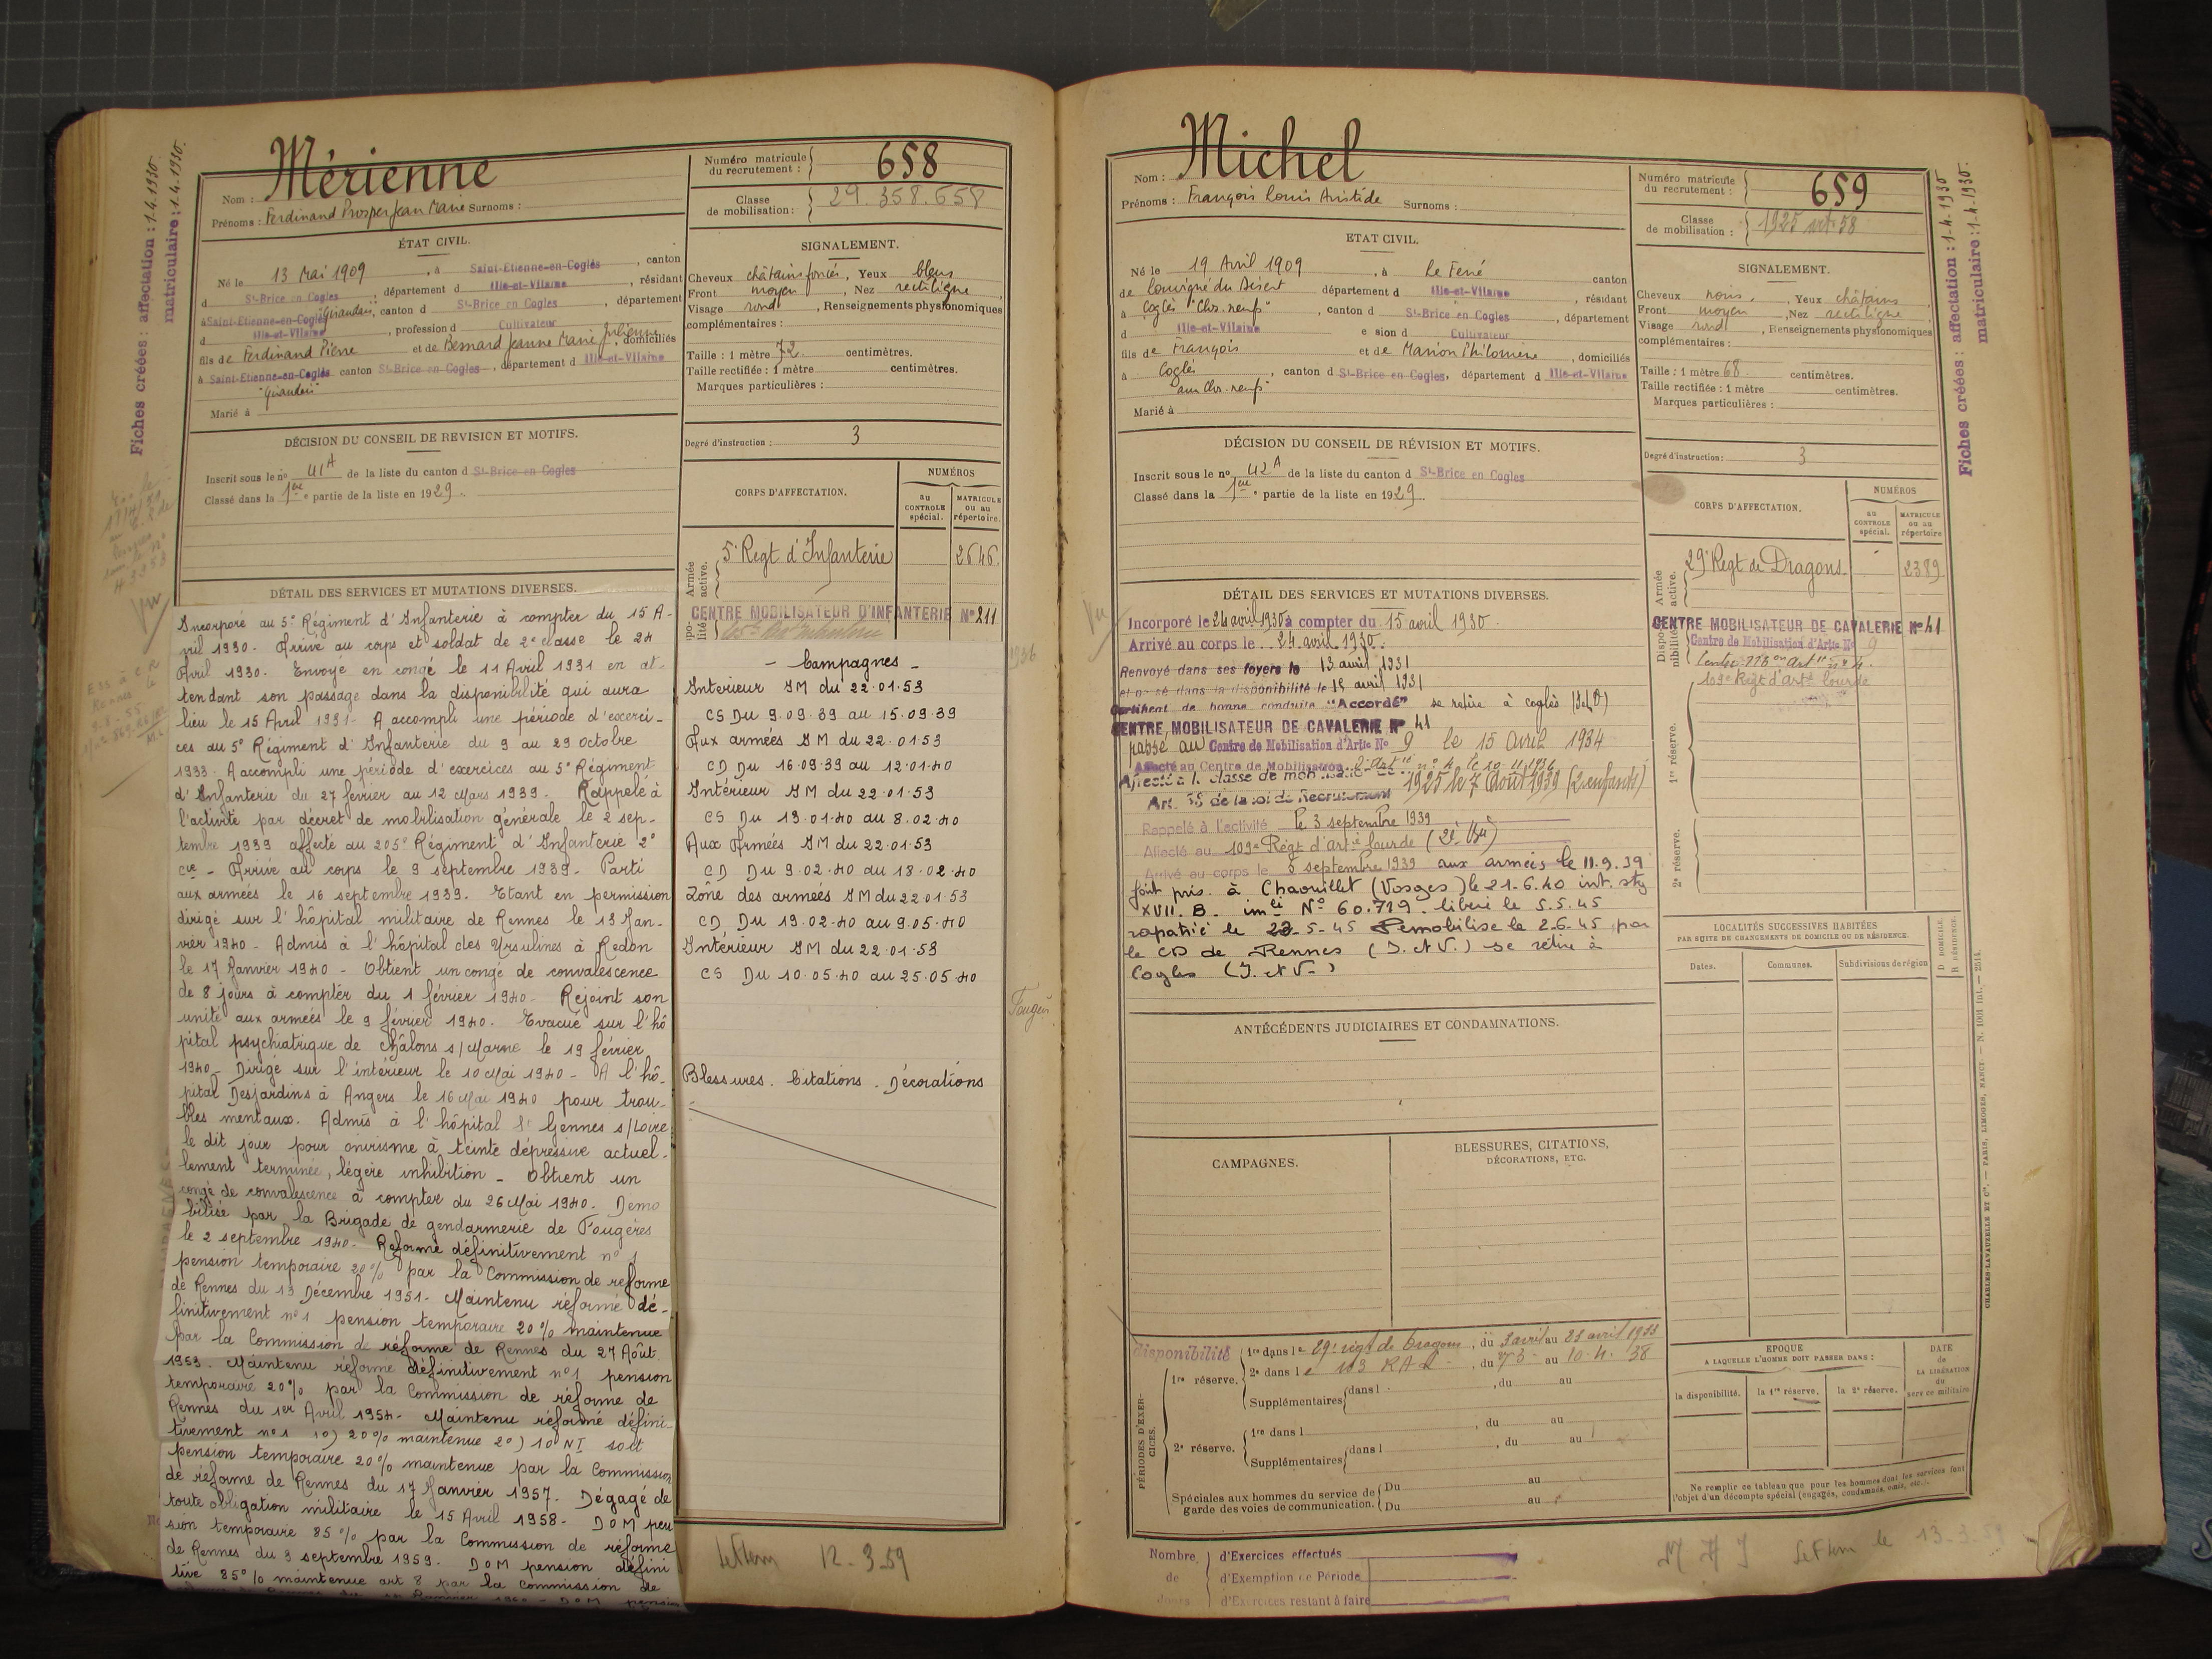 Fiches créées : affectation : 1.4.1930.
matriculaire : 1.4.1930.
Nom : Mérienne
Prénoms : Ferdinand Prosper Jean Marie Surnoms :
Numéro matricule du recrutement : 658
Classe de mobilisation : 29.358.658
ÉTAT CIVIL.
Né le 13 Mai 1909, à Saint-Etienne-en-Coglès, canton
d St-Brice en Cogles, département d Ille-et-Vilaine, résidant
à Saint-Etienne-en-Coglès "Giraudais", canton d St-Brice en Cogles, département
d Ille-et-Vilaine, profession d Cultivateur
fils de Ferdinand Pierre et de Bernard Jeanne Marie Julienne, domiciliés
à Saint-Etienne-en-Coglès canton St-Brice en Cogles, département d Ille-et-Vilaine
Marié à
SIGNALEMENT.
Cheveux châtains foncés, Yeux bleus
Front moyen, Nez rectiligne,
Visage rond, Renseignements physionomiques
complémentaires :
Taille : 1 mètre 72 centimètres.
Taille rectifiée : 1 mètre centimètres.
Marques particulières :
Degré d'instruction : 3
DÉCISION DU CONSEIL DE REVISION ET MOTIFS.
Inscrit sous le no 41A de la liste du canton d St-Brice en Cogles
Classé dans la 1ère partie de la liste en 1929.
CORPS D'AFFECTATION.
NUMÉROS
au CONTROLE spécial.
MATRICULE ou au répertoire.
Armée active.
5e Regt d'Infanterie 2646
CENTRE MOBILISATEUR D'INFANTERIE No 211
DÉTAIL DES SERVICES ET MUTATIONS DIVERSES.
Incorporé au 5e Régiment d'Infanterie à compter du 15 A-
vril 1930. Arrivé au corps et soldat de 2e classe le 24
Avril 1930. Envoyé en congé le 11 Avril 1931 en at-
tendant son passage dans la disponibilité qui aura
lieu le 15 Avril 1931. A accompli une période d'exerci-
ces au 5e Régiment d'Infanterie du 9 au 29 octobre
1933. A accompli une période d'exercices au 5e Régiment
d'Infanterie du 27 février au 12 Mars 1939. Rappelé à
l'activité par décret de mobilisation générale le 2 sep-
tembre 1939 affecté au 205e Régiment d'Infanterie 2e
cie - Arrivé au corps le 9 septembre 1939. Parti
aux armées le 16 septembre 1939. Etant en permission
dirigé sur l'hôpital militaire de Rennes le 13 Jan-
vier 1940 - Admis à l'hôpital des Ursulines à Redon
le 17 Janvier 1940 - Obtient un congé de convalescence
de 8 jours à compter du 1 février 1940. Rejoint son
unité aux armées le 9 février 1940. Evacué sur l'hô
pital psychiatrique de Châlons s/Marne le 19 février
1940 - Dirigé sur l'intérieur le 10 Mai 1940 - A l'hô-
pital Desjardins à Angers le 16 Mai 1940 pour trou-
bles mentaux. Admis à l'hôpital Gennes s/Loire
le dit jour pour onirisme à teinte dépressive actuel-
lement terminée, légère inhibition - Obtient un
congé de convalescence à compter du 26 Mai 1940. Démo
bilisé par la Brigade de gendarmerie de Fougères
le 2 septembre 1940. Réformé définitivement no 1
pension temporaire 20% par la Commission de réforme
de Rennes du 13 Décembre 1951. Maintenu réformé dé-
finitivement no 1 pension temporaire 20% maintenue
par la Commission de réforme de Rennes du 27 Août
1953. Maintenu réformé définitivement no 1 pension
temporaire 20% par la Commission de réforme de
Rennes du 1er Avril 1954. Maintenu réformé défini-
tivement no 1 1o) 20% maintenue 2o) 10 NI soit
pension temporaire 20% maintenue par la Commission
de réforme de Rennes du 17 Janvier 1957. Dégagé de
toute obligation militaire le 15 Avril 1958. DOM pen
sion temporaire 85% par la Commission de réforme
de Rennes du 3 septembre 1959. DOM pension défini
tive 85% maintenue art 8 par la Commission de
- Campagnes -
Intérieur IM du 22.01.53
CS Du 9.09.39 au 15.09.39
Aux armées IM du 22.01.53
CD Du 16.09.39 au 12.01.40
Intérieur IM du 22.01.53
CS Du 13.01.40 au 8.02.40
Aux Armées IM du 22.01.53
CD Du 9.02.40 au 18.02.40
Zône des armées IM du 22.01.53
CD Du 19.02.40 au 9.05.40
Intérieur IM du 22.01.53
CS Du 10.05.40 au 25.05.40
Blessures. Citations. Décorations
12-3-59
Nom : Michel
Prénoms : François Louis Aristide Surnoms :
Numéro matricule du recrutement : 659
Classe de mobilisation : 1925 art. 58
Fiches créées : affectation : 1-4-1930
matriculaire : 1-4-1930.
ETAT CIVIL.
Né le 19 Avril 1909, à Le Ferré canton
de Louvigné du Désert département d Ille-et-Vilaine, résidant
à Coglès "Clos-neuf", canton d St-Brice en Cogles, département
d Ille-et-Vilaine e sion d Cultivateur
fils de François et de Marion Philomène, domiciliés
à Coglès, canton d St-Brice en Cogles, département d Ille-et-Vilaine
au Clos-neuf
Marié à
SIGNALEMENT.
Cheveux noirs, Yeux châtains
Front moyen, Nez rectiligne
Visage rond, Renseignements physionomiques
complémentaires :
Taille : 1 mètre 68 centimètres.
Taille rectifiée : 1 mètre centimètres.
Marques particulières :
Degré d'instruction : 3
DÉCISION DU CONSEIL DE RÉVISION ET MOTIFS.
Inscrit sous le no 42A de la liste du canton d St-Brice en Cogles
Classé dans la 1ère partie de la liste en 1929.
CORPS D'AFFECTATION.
NUMÉROS
au CONTROLE spécial.
MATRICULE ou au répertoire
Armée active.
29e Regt de Dragons 2389
CENTRE MOBILISATEUR DE CAVALERIE No 41
Disponibilité
Centre de Mobilisation d'Artie No 9
109e Régt d'Artie lourde
1re réserve.
2e réserve.
DÉTAIL DES SERVICES ET MUTATIONS DIVERSES.
Incorporé le 24 avril 1930 à compter du 15 avril 1930.
Arrivé au corps le 24 avril 1930.
Renvoyé dans ses foyers le 13 avril 1931
et passé dans la disponibilité le 15 avril 1931
Certificat de bonne conduite "Accordé" se retire à Coglès (I&V)
CENTRE MOBILISATEUR DE CAVALERIE No 41
passé au Centre de Mobilisation d'Artie No 9 le 15 avril 1934
Affecté au Centre de Mobilisation d'artie no 4 le 10.11.1936
Affecté à la classe de mobilisation 1925 le 7 Août 1939 (2 enfants)
Art. 58 de la loi de Recrutement
Rappelé à l'activité le 3 septembre 1939
Affecté au 109e Régt d'artie lourde
Arrivé au corps le 5 septembre 1939 aux armées le 11.9.39
fait pris. à Chaouillet (Vosges) le 21.6.40 int. stg
XVII. B. imle No 60.719. libéré le 5.5.45
rapatrié le 22-5-45 Démobilisé le 2.6.45 par
le CD de Rennes (I. et V.) se retire à
Coglès (I. et V.)
ANTÉCÉDENTS JUDICIAIRES ET CONDAMNATIONS.
CAMPAGNES.
BLESSURES, CITATIONS, DÉCORATIONS, ETC.
LOCALITÉS SUCCESSIVES HABITÉES
PAR SUITE DE CHANGEMENTS DE DOMICILE OU DE RÉSIDENCE.
D DOMICILE. R RÉSIDENCE.
Dates. Communes. Subdivisions de région
PÉRIODES D'EXERCICES.
Disponibilité
1re réserve.
1re dans le 29e régt de Dragons, du 3 avril au 23 avril 1933
2e dans le 103 RAL, du au 10.4.38
Supplémentaires dans l , du au
2e réserve.
1re dans l , du au
Supplémentaires dans l , du au
Spéciales aux hommes du service de garde des voies de communication. Du au
Du au
EPOQUE
A LAQUELLE L'HOMME DOIT PASSER DANS :
la disponibilité. la 1re réserve. la 2e réserve.
DATE de LA LIBÉRATION du service militaire.
Ne remplir ce tableau que pour les hommes dont les services font
l'objet d'un décompte spécial (engagés, condamnés, omis, etc.).
CHARLES-LAVAUZELLE ET Cie. — PARIS, LIMOGES, NANCY. — N. 1001 (int. — 2514.
Nombre de jours
d'Exercices effectués
d'Exemption de Période
d'Exercices restant à faire
le 13-3-59